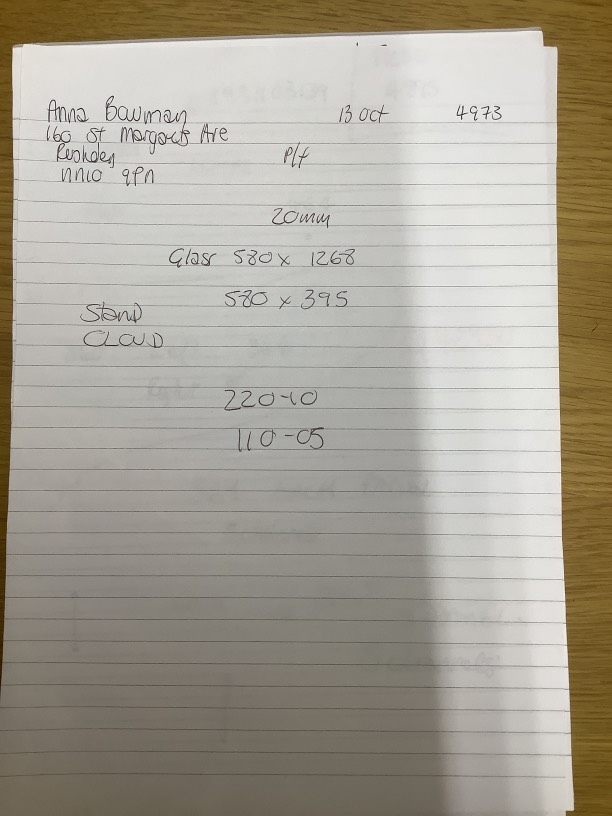 Anna Bowman 13 Oct 4973
160 St Margarets Ave
Rushden P/f
NN10 9PN
20mm
Glass 580 x 1268
580 x 395
Stand
CLOUD
220-10
110-05